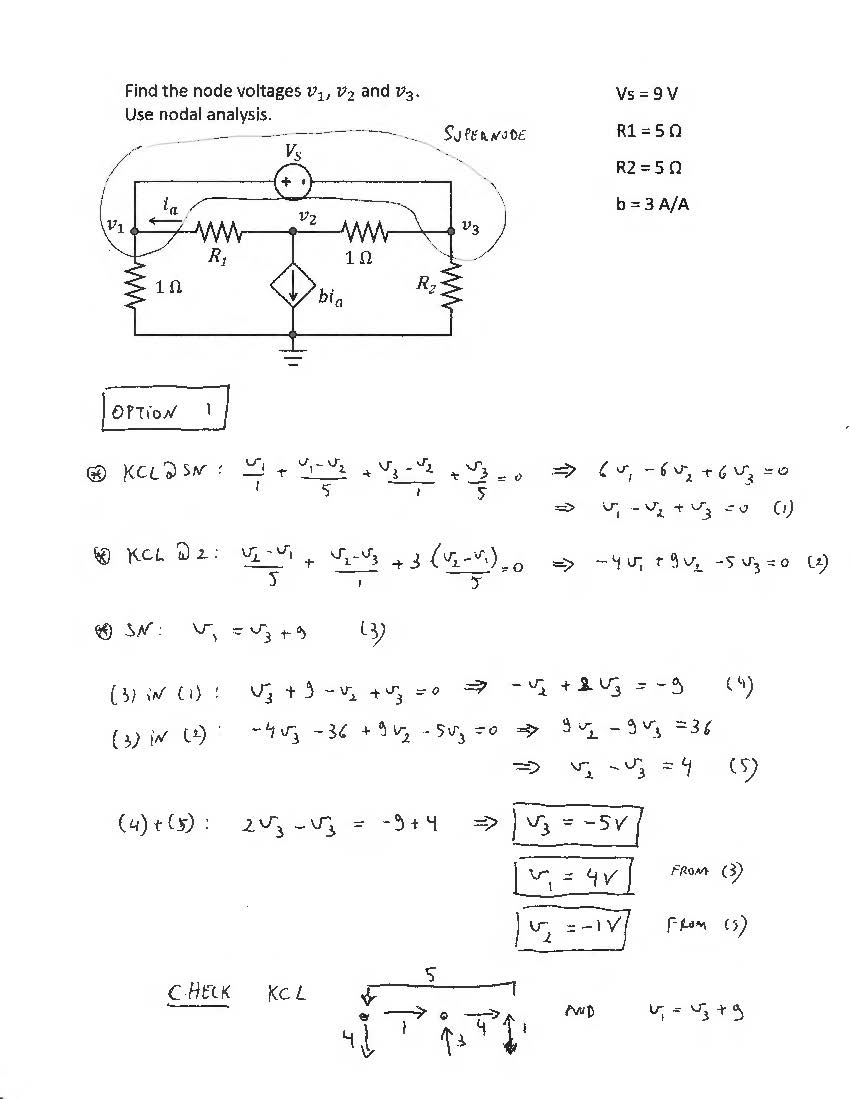 Find the node voltages v₁, v₂ and v₃.
Use nodal analysis.
Vs = 9 V
R1 = 5 Ω
R2 = 5 Ω
b = 3 A/A
SUPERNODE
Vs
+ -
v₁
iₐ
v₂
v₃
R₁
1 Ω
1 Ω
biₐ
R₂
OPTION 1
⊛ KCL @ SN : v₁/1 + (v₁-v₂)/5 + (v₃-v₂)/1 + v₃/5 = 0 ⇒ 6v₁ - 6v₂ + 6v₃ = 0
⇒ v₁ - v₂ + v₃ = 0 (1)
⊛ KCL @ 2 : (v₂-v₁)/5 + (v₂-v₃)/1 + 3 (v₂-v₁)/5 = 0 ⇒ -4v₁ + 9v₂ - 5v₃ = 0 (2)
⊛ SN : v₁ = v₃ + 9 (3)
(3) IN (1) : v₃ + 9 - v₂ + v₃ = 0 ⇒ -v₂ + 2v₃ = -9 (4)
(3) IN (2) : -4v₃ - 36 + 9v₂ - 5v₃ = 0 ⇒ 9v₂ - 9v₃ = 36
⇒ v₂ - v₃ = 4 (5)
(4)+(5) : 2v₃ - v₃ = -9 + 4 ⇒ v₃ = -5V
v₁ = 4V FROM (3)
v₂ = -1V FROM (5)
CHECK KCL
5
4 1 3 4 1
AND v₁ = v₃ + 9